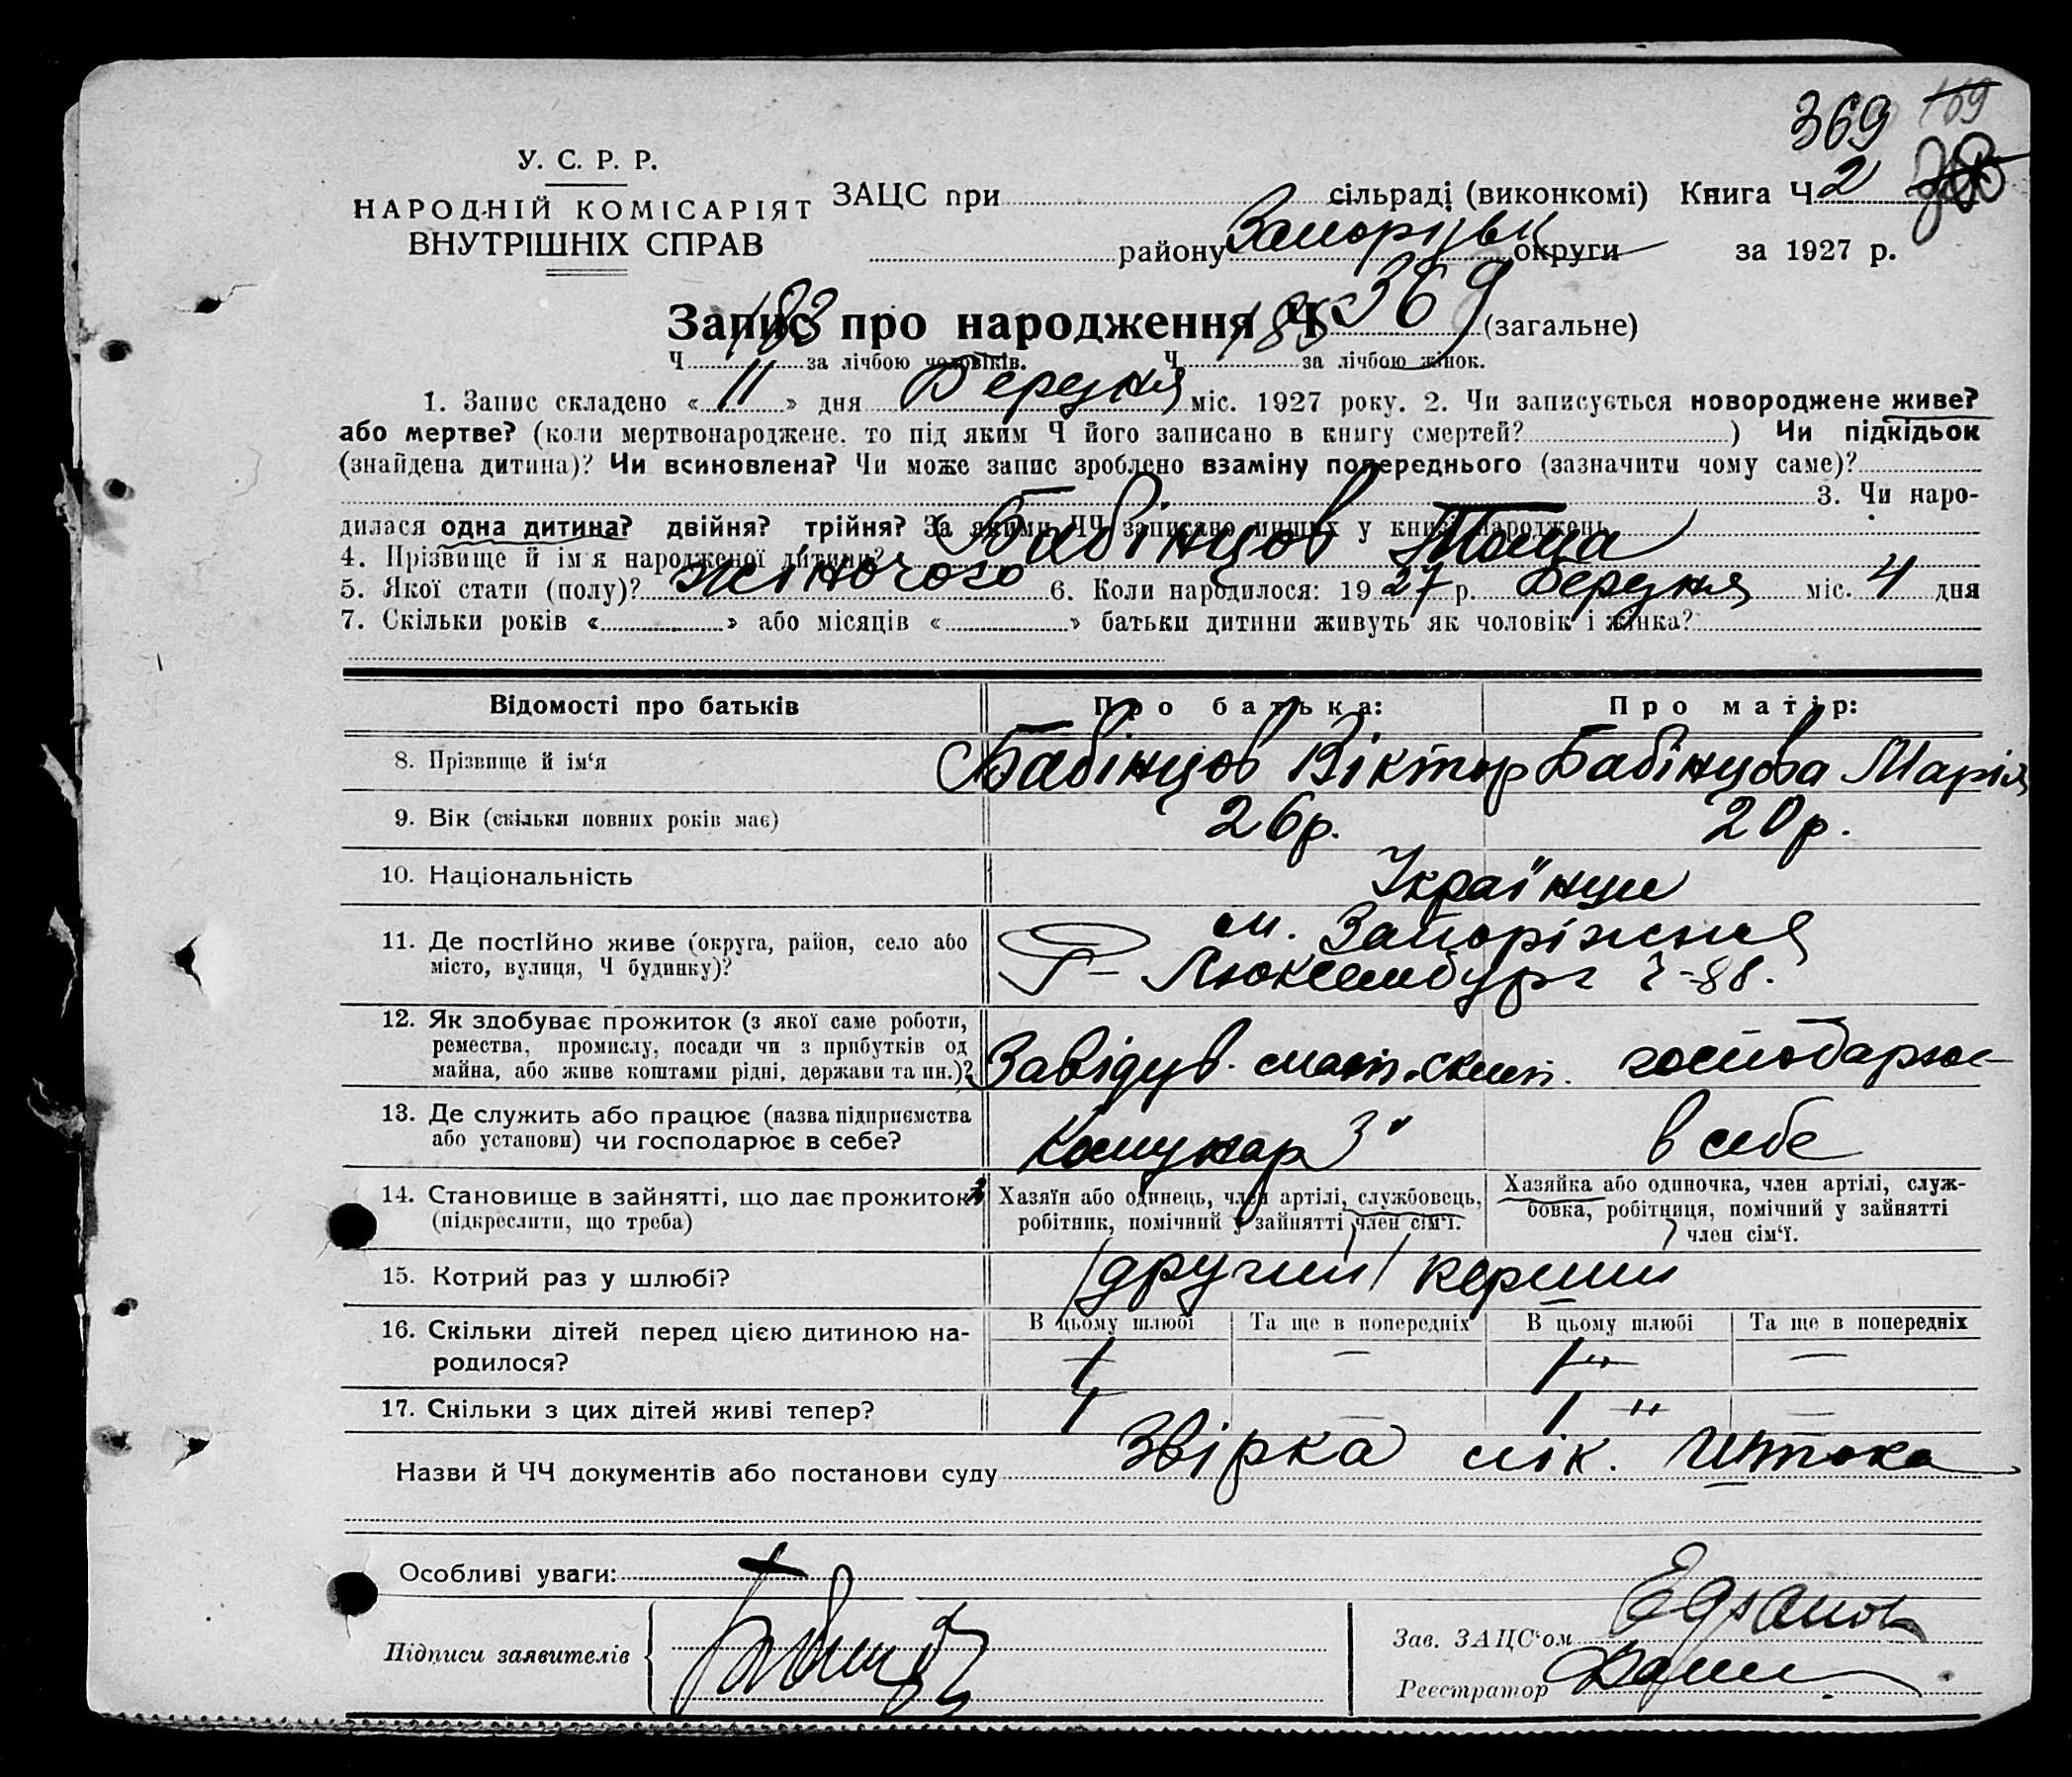 369 169
У. С. Р. Р.
НАРОДНІЙ КОМІСАРІЯТ
ВНУТРІШНІХ СПРАВ
ЗАЦС при сільраді (виконкомі) Книга Ч 2
району Запорізьк округи за 1927 р.
Запис про народження Ч 369 (загальне)
Ч 183 за лічбою чоловіків. Ч за лічбою жінок.
1. Запис складено « 11 » дня Березня міс. 1927 року. 2. Чи записується новороджене живе?
або мертве? (коли мертвонароджене, то під яким Ч його записано в книгу смертей? ) Чи підкідьок
(знайдена дитина)? Чи всиновлена? Чи може запис зроблено взаміну попереднього (зазначити чому саме)?
3. Чи наро-
дилася одна дитина? двійня? трійня? За якими ЧЧ записано инших у книзі народжень
4. Прізвище й ім'я народженої дитини? Бабінцов
5. Якої стати (полу)? жіночого 6. Коли народилося: 1927 р. Березня міс. 4 дня
7. Скільки років « » або місяців « » батьки дитини живуть як чоловік і жінка?
Відомості про батьків Про батька: Про матір:
8. Прізвище й ім'я Бабінцов Віктор Бабінцова Марія
9. Вік (скільки повних років має) 26р. 20р.
10. Національність Українци
11. Де постійно живе (округа, район, село або
місто, вулиця, Ч будинку)?
м. Запоріжжя
Р– Люксембург Ч-88.
12. Як здобуває прожиток (з якої саме роботи,
ремества, промислу, посади чи з прибутків од
майна, або живе коштами рідні, держави та ин.)?
Завідув. мат. склат. господарює
13. Де служить або працює (назва підприємства
або установи) чи господарює в себе?
Комунар З" в себе
14. Становище в зайнятті, що дає прожиток?
(підкреслити, що треба)
Хазяїн або одинець, член артілі, службовець,
робітник, помічний у зайнятті член сім'ї.
Хазяйка або одиночка, член артілі, служ-
бовка, робітниця, помічний у зайнятті
член сім'ї.
15. Котрий раз у шлюбі? /другий/ перший
16. Скільки дітей перед цією дитиною на-
родилося?
В цьому шлюбі Та ще в попередніх В цьому шлюбі Та ще в попередніх
1 — 1" —
17. Скільки з цих дітей живі тепер? 1 — 1 " —
Назви й ЧЧ документів або постанови суду Звірка лік.
Особливі уваги:
Підписи заявителів
Зав. ЗАЦС'ом
Реєстратор